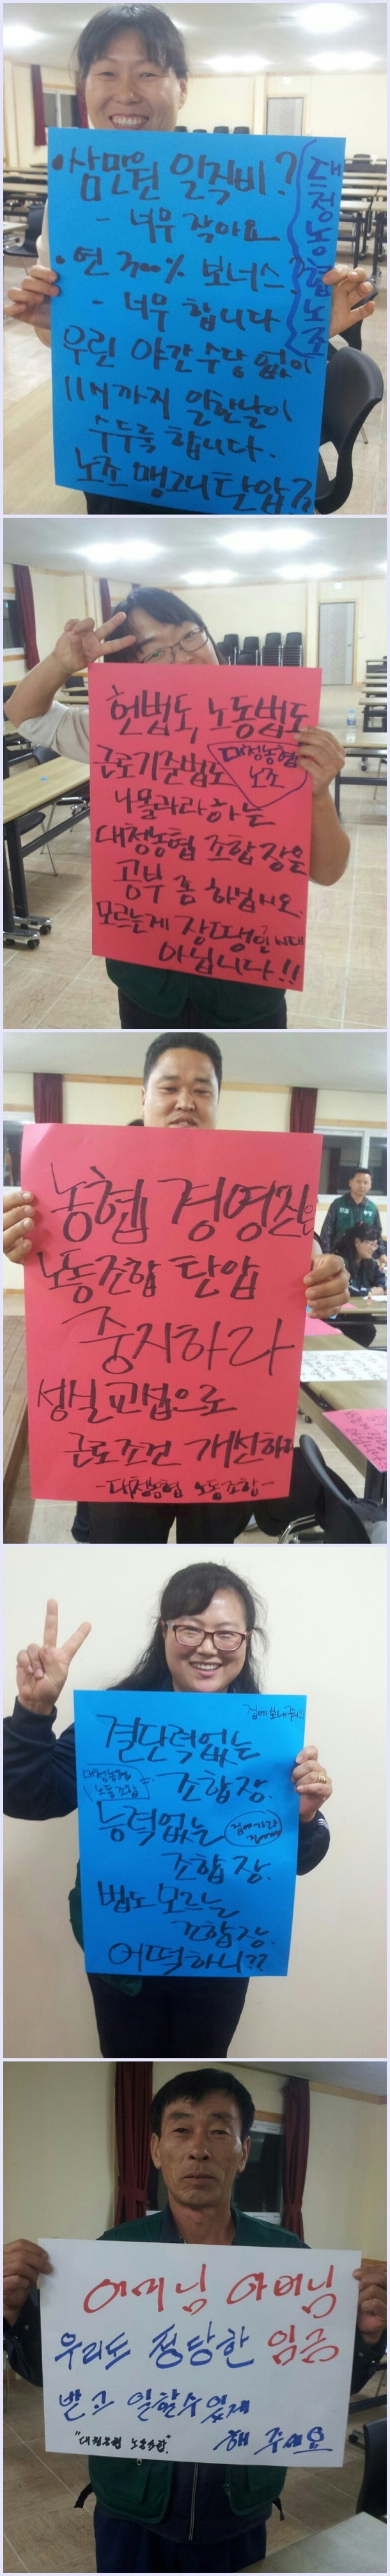 삼만원 일직비?
- 너무 작아요
· 연 300% 보너스?
- 너무 합니다
우린 야간수당 없이
11시까지 일한날이
수두룩 합니다.
노조 탄압
대정농협노조
헌법도, 노동법도
근로기준법도
나몰라라하는
대정농협 조합장은
공부 좀 하십시오.
모르는게 장땡인
아닙니다!!
대정농협
노조
농협 경영진은
노동조합 탄압
중지하라
성실교섭으로
근로조건 개선하라
-대정농협 노동조합-
집에 보내줘!!
결단력없는
조합장.
대정농협
노동조합
능력없는
조합장.
집에가라
법도 모르는
조합장.
어떡하니??
어머님 아버님
우리도 정당한 임금
받고 일할수있게
해 주세요
"대정농협 노동조합"